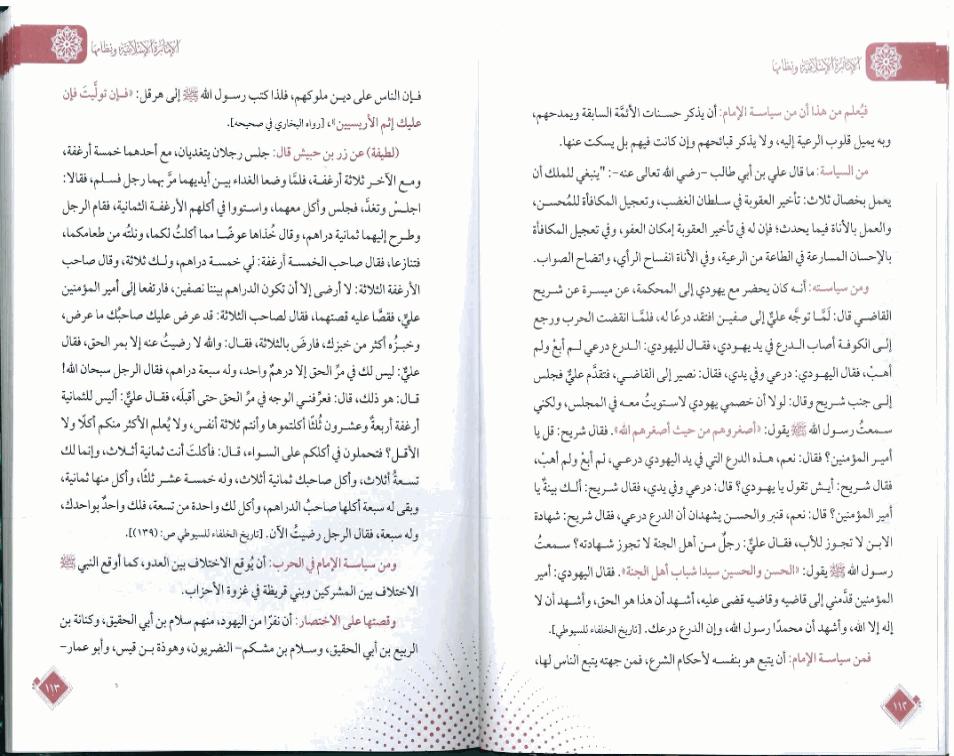 الإمارة الإسلامية ونظامها
فيُعلم من هذا أن من سياسة الإمام: أن يذكر حسنات الأئمَّة السابقة ويمدحهم،
وبه يميل قلوب الرعية إليه، ولا يذكر قبائحهم وإن كانت فيهم بل يسكت عنها.
من السياسة: ما قال علي بن أبي طالب -رضي الله تعالى عنه-: "ينبغي للملك أن
يعمل بخصال ثلاث: تأخير العقوبة في سلطان الغضب، وتعجيل المكافأة للمُحسن،
والعمل بالأناة فيما يحدث؛ فإن له في تأخير العقوبة إمكان العفو، وفي تعجيل المكافأة
بالإحسان المسارعة في الطاعة من الرعية، وفي الأناة انفساح الرأي، واتضاح الصواب.
ومن سياسته: أنه كان يحضر مع يهودي إلى المحكمة، عن ميسرة عن شريح
القاضي قال: لَمَّا توجَّه عليٌّ إلى صفين افتقد درعًا له، فلمَّا انقضت الحرب ورجع
إلى الكوفة أصاب الدرع في يد يهودي، فقال لليهودي: الدرع درعي لم أبع ولم
أهبْ، فقال اليهودي: درعي وفي يدي، فقال: نصير إلى القاضي، فتقدَّم عليٌّ فجلس
إلى جنب شريح وقال: لولا أن خصمي يهودي لاستويتُ معه في المجلس، ولكني
سمعتُ رسول الله ﷺ يقول: «أصغروهم من حيث أصغرهم الله». فقال شريح: قل يا
أمير المؤمنين؟ فقال: نعم، هذه الدرع التي في يد اليهودي درعي، لم أبع ولم أهبْ،
فقال شريح: أيش تقول يا يهودي؟ قال: درعي وفي يدي، فقال شريح: ألك بينةٌ يا
أمير المؤمنين؟ قال: نعم، قنبر والحسن يشهدان أن الدرع درعي، فقال شريح: شهادة
الابن لا تجوز للأب، فقال عليٌّ: رجلٌ من أهل الجنة لا تجوز شهادته؟ سمعتُ
رسول الله ﷺ يقول: «الحسن والحسين سيدا شباب أهل الجنة». فقال اليهودي: أمير
المؤمنين قدَّمني إلى قاضيه وقاضيه قضى عليه، أشهد أن هذا هو الحق، وأشهد أن لا
إله إلا الله، وأشهد أن محمدًا رسول الله، وإن الدرع درعك. [تاريخ الخلفاء للسيوطي].
فمن سياسة الإمام: أن يتبع هو بنفسه لأحكام الشرع، فمن جهته يتبع الناس لها،
١١٢
الإمارة الإسلامية ونظامها
فإن الناس على دين ملوكهم، فلذا كتب رسول الله ﷺ إلى هرقل: «فإن تولَّيتَ فإن
عليك إثم الأريسيين»، [رواه البخاري في صحيحه].
(لطيفة) عن زر بن حبيش قال: جلس رجلان يتغديان، مع أحدهما خمسة أرغفة،
ومع الآخر ثلاثة أرغفة، فلمَّا وضعا الغداء بين أيديهما مرَّ بهما رجل فسلم، فقالا:
اجلسْ وتغدَّ، فجلس وأكل معهما، واستووا في أكلهم الأرغفة الثمانية، فقام الرجل
وطرح إليهما ثمانية دراهم، وقال خُذاها عوضًا مما أكلتُ لكما، ونلتُه من طعامكما،
فتنازعا، فقال صاحب الخمسة أرغفة: لي خمسة دراهم، ولك ثلاثة، وقال صاحب
الأرغفة الثلاثة: لا أرضى إلا أن تكون الدراهم بيننا نصفين، فارتفعا إلى أمير المؤمنين
عليٍّ، فقصَّا عليه قصتهما، فقال لصاحب الثلاثة: قد عرض عليك صاحبُك ما عرض،
وخبزُه أكثر من خبزك، فارضَ بالثلاثة، فقال: والله لا رضيتُ عنه إلا بمر الحق، فقال
عليٌّ: ليس لك في مرِّ الحق إلا درهمٌ واحد، وله سبعة دراهم، فقال الرجل سبحان الله!
قال: هو ذلك، قال: فعرِّفني الوجه في مرِّ الحق حتى أقبلَه، فقال عليٌّ: أليس للثمانية
أرغفة أربعةٌ وعشرون ثُلثًا أكلتموها وأنتم ثلاثة أنفس، ولا يُعلم الأكثر منكم أكلًا ولا
الأقل؟ فتحملون في أكلكم على السواء، قال: فأكلتَ أنت ثمانية أثلاث، وإنما لك
تسعةُ أثلاث، وأكل صاحبك ثمانية أثلاث، وله خمسة عشر ثلثًا، وأكل منها ثمانية،
وبقى له سبعة أكلها صاحبُ الدراهم، وأكل لك واحدة من تسعة، فلك واحدٌ بواحدك،
وله سبعة، فقال الرجل رضيتُ الآن. [تاريخ الخلفاء للسيوطي ص: (١٣٩)].
ومن سياسة الإمام في الحرب: أن يُوقع الاختلاف بين العدو، كما أوقع النبي ﷺ
الاختلاف بين المشركين وبني قريظة في غزوة الأحزاب.
وقصتها على الاختصار: أن نفرًا من اليهود، منهم سلام بن أبي الحقيق، وكنانة بن
الربيع بن أبي الحقيق، وسلام بن مشكم- النضريون، وهوذة بن قيس، وأبو عمار-
١١٣